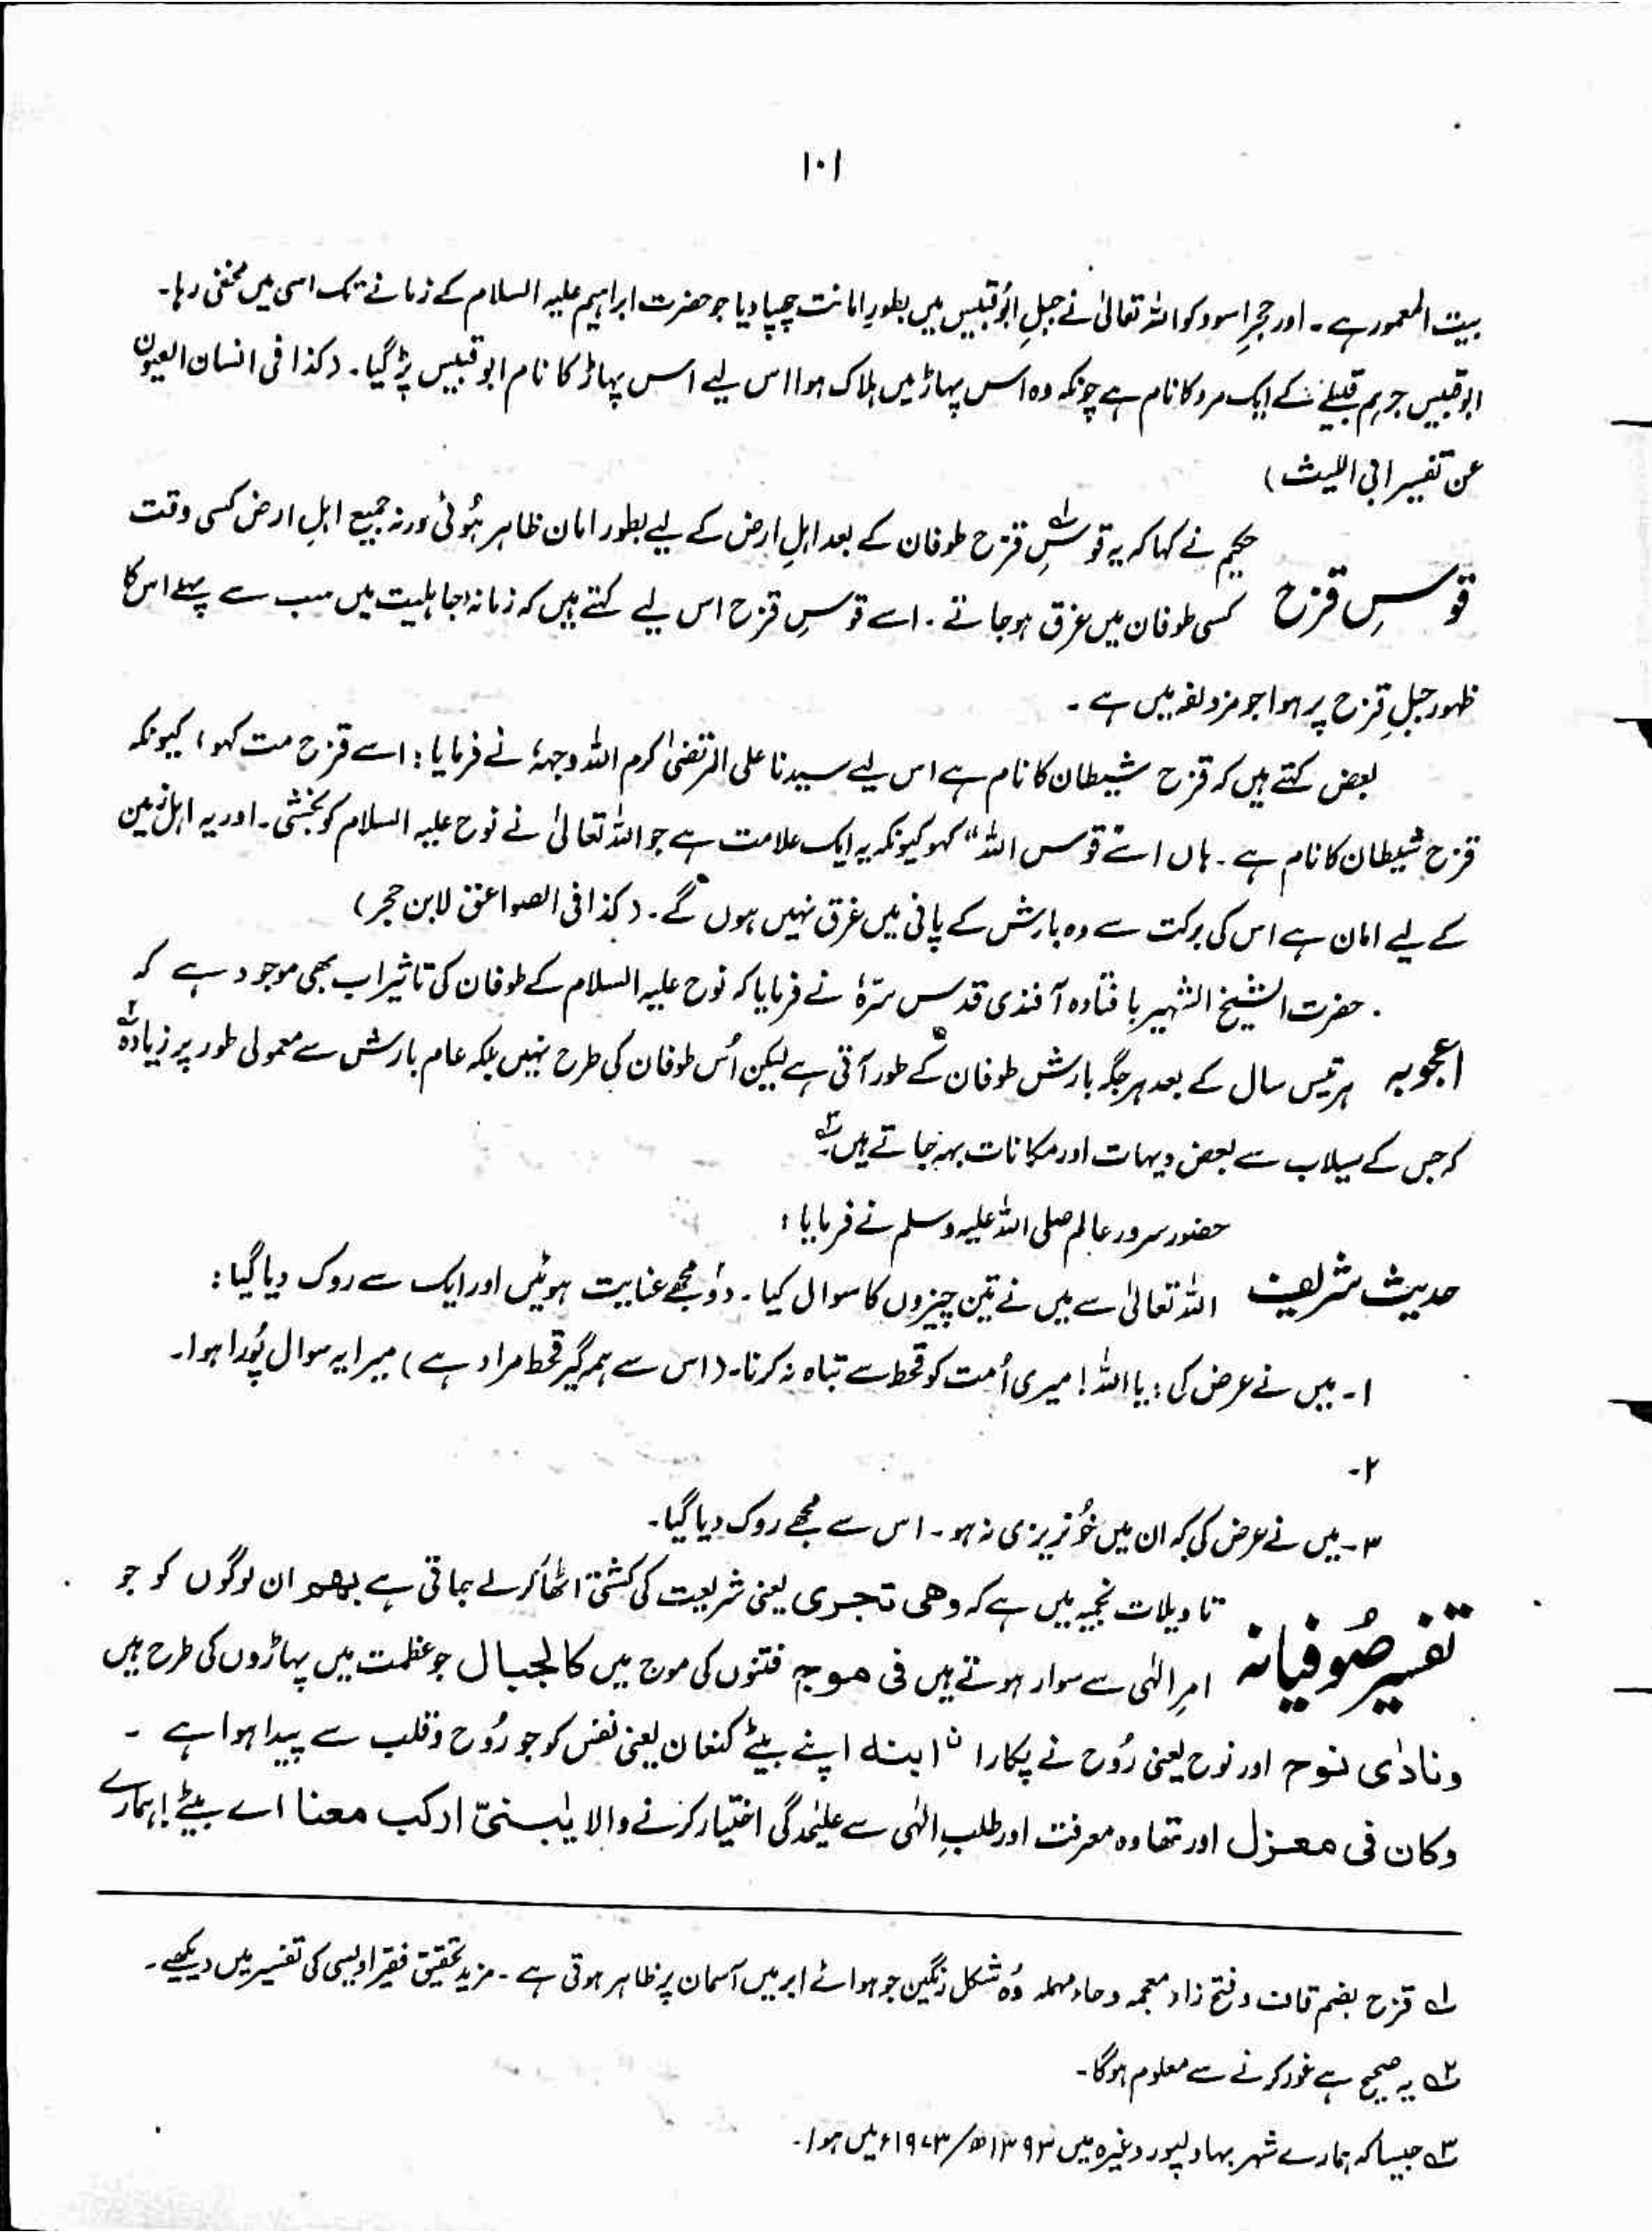 ۱۰۱
بیت المعمور ہے ۔ اور حجرِ اسود کو اللہ تعالیٰ نے جبلِ ابُو قبیس میں بطورِ امانت چھپا دیا جو حضرت ابراہیم علیہ السلام کے زمانے تک اسی میں مخفی رہا۔
ابوقبیس جرہم قبیلے کے ایک مرد کا نام ہے چونکہ وہ اس پہاڑ میں ہلاک ہوا اس لیے اس پہاڑ کا نام ابوقبیس پڑ گیا۔ (کذا فی انسان العیون
عن تفسیر ابی اللیث)
حکیم نے کہا کہ یہ قوسِ قزح طوفان کے بعد اہلِ ارض کے لیے بطور امان ظاہر ہُوئی ورنہ جمیع اہلِ ارض کسی وقت
قوسِ قزح کسی طوفان میں غرق ہوجاتے ۔ اسے قوسِ قزح اس لیے کہتے ہیں کہ زمانۂ جاہلیت میں سب سے پہلے اس کا
ظہور جبلِ قزح پر ہوا جو مزدلفہ میں ہے ۔
بعض کہتے ہیں کہ قزح شیطان کا نام ہے اس لیے سیدنا علی المرتضیٰ کرم اللہ وجہہٗ نے فرمایا : اسے قزح مت کہو، کیونکہ
قزح شیطان کا نام ہے ۔ ہاں اسے قوس اللہ" کہو کیونکہ یہ ایک علامت ہے جو اللہ تعالیٰ نے نوح علیہ السلام کو بخشی ۔ اور یہ اہل زمین
کے لیے امان ہے اس کی برکت سے وہ بارش کے پانی میں غرق نہیں ہوں گے ۔ (کذا فی الصواعق لابن حجر)
حضرت الشیخ الشہیر بافتادہ آفندی قدس سرّہٗ نے فرمایا کہ نوح علیہ السلام کے طوفان کی تاثیر اب بھی موجود ہے کہ
اعجوبہ ہر تیس سال کے بعد ہر جگہ بارش طوفان کے طور آتی ہے لیکن اُس طوفان کی طرح نہیں بلکہ عام بارش سے معمولی طور پر زیادہ۲
کہ جس کے سیلاب سے بعض دیہات اور مکانات بہہ جاتے ہیں۳۔
حضور سرور عالم صلی اللہ علیہ وسلم نے فرمایا :
حدیث شریف اللہ تعالیٰ سے میں نے تین چیزوں کا سوال کیا ۔ دو مجھے عنایت ہوئیں اور ایک سے روک دیا گیا :
۱۔ میں نے عرض کی : یا اللہ ! میری اُمت کو قحط سے تباہ نہ کرنا۔ (اس سے ہمہ گیر قحط مراد ہے) میرا یہ سوال پُورا ہوا۔
۲۔
۳۔ میں نے عرض کی کہ ان میں خُونریزی نہ ہو ۔ اس سے مجھے روک دیا گیا۔
تاویلات نجمیہ میں ہے کہ وھی تجری یعنی شریعت کی کشتی اٹھا کر لے جاتی ہے بھم ان لوگوں کو جو
تفسیر صُوفیانہ امرِ الٰہی سے سوار ہوتے ہیں فی موج فتنوں کی موج میں کالجبال جو عظمت میں پہاڑوں کی طرح ہیں
ونادٰی نوح اور نوح یعنی رُوح نے پکارا ابنہ اپنے بیٹے کنعان یعنی نفس کو جو رُوح و قلب سے پیدا ہوا ہے ۔
وکان فی معزل اور تھا وہ معرفت اور طلبِ الٰہی سے علیٰحدگی اختیار کرنے والا یٰبنیّ ارکب معنا اے بیٹے! ہمارے
۱ قزح بضم قاف و فتح زاء معجمہ و حاء مہملہ وُہ شکل رنگین جو ہوائے ابر میں آسمان پر ظاہر ہوتی ہے ۔ مزید تحقیق فقیر اویسی کی تفسیر میں دیکھیے۔
۲ یہ صحیح ہے غور کرنے سے معلوم ہوگا۔
۳ جیسا کہ ہمارے شہر بہاولپور وغیرہ میں ۱۳۹۳ھ/۱۹۷۳ء میں ہوا۔